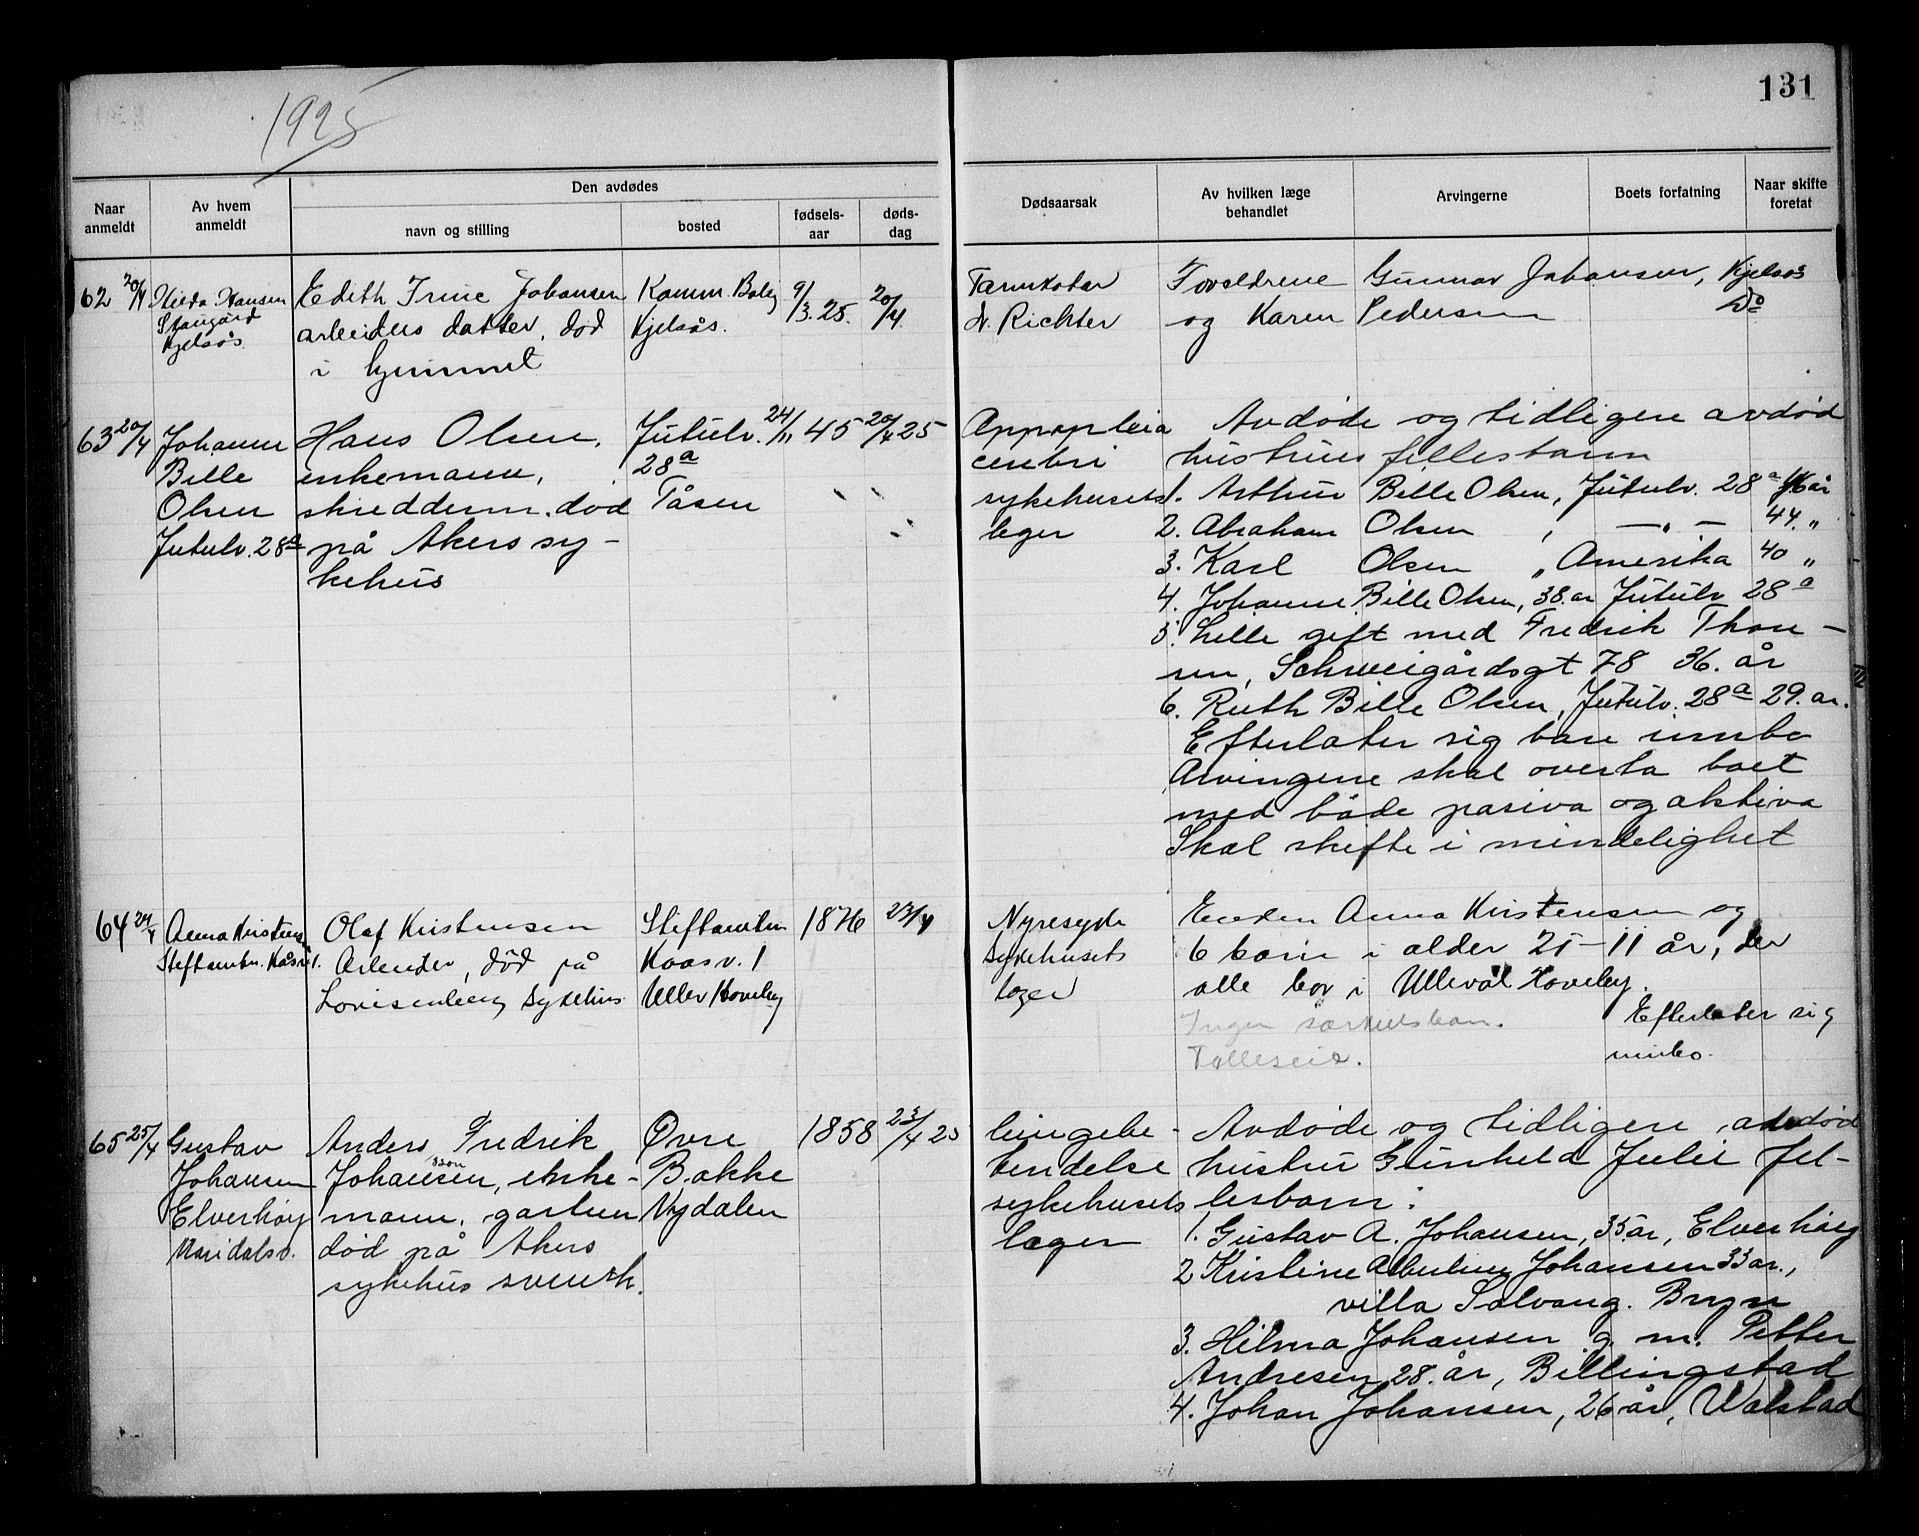 1925
131
Naar anmeldt
Av hvem anmeldt
Den avdødes
navn og stilling
bosted
fødsels-aar
døds-dag
Dødsaarsak
Av hvilken læge behandlet
Arvingerne
Boets forfatning
Naar skifte foretat
62 20/4
Hilda Hansen
Kjelsås
Edith Irene Johansen
arbeiders datter, død
i hjemmet
Komm. Bolig
Kjelsås.
9/3. 25.
20/4.
Tarmkatar
dr. Richter
Foreldrene Gunnar Johansen, Kjelsås
og Karen Pedersen Do
63 20/4
Johanne
Bille
Olsen
Jutulv. 28a
Hans Olsen,
enkemann,
skredderm. død
på Akers sy-
kehus
Jutulv.
28a
Tåsen
24/11 45
20/4 25
Appopleia
cerebri
sykehusets
leger
Avdøde og tidligere avdød
hustrus fellesbarn
1. Arthur Bille Olsen, Jutulv. 28a 46 år
2. Abraham Olsen , —"— 44 "
3. Karl Olsen " Amerika 40 "
4. Johanne Bille Olsen, 38. år Jutulv 28a
5. Lille gift med Fredrik Thore-
sen, Schweigårdsgt 78 36. år
6. Ruth Bille Olsen, Jutulv. 28a 29. år.
Efterlater sig bare innbo
Arvingene skal overta boet
med både pasiva og aktiva
Skal skifte i mindelighet
64 24/4
Anna Kristensen
Steftamtm. Kåsv. 1.
Olaf Kristensen
Arbeider, død på
Lovisenberg Sykehus
Stiftamtm
Kaasv. 1
Ullev. Haveby
1876
23/4
Nyresyke
Sykehusets
læger
Enken Anna Kristensen og
6 barn i alder 25–11 år, der
alle bor i Ullevål Haveby.
Ingen særkulsbarn.
Fælleseie.
Efterlater sig
innbo.
65 25/4
Gustav
Johansen
Elverhøy
Maridalsv.
Anders Fredrik
Johansen, enke-
sson
mann, gartner
død på Akers
sykehus svensk.
Øvre
Bakke
Nydalen
1858
23/4 25
lungebe-
tendelse
sykehusets
læger
Avdøde og tidligere avdød
hustru Gunhild Julie fel-
lesbarn:
1. Gustav A. Johansen, 35 år, Elverhøy
2 Kristine Albertine Johansen 33 år.,
villa Solvang. Bryn
3. Hilma Johansen g. m. Petter
Andresen 28. år, Billingstad
4. Johan Johansen, 26 år, Walstad